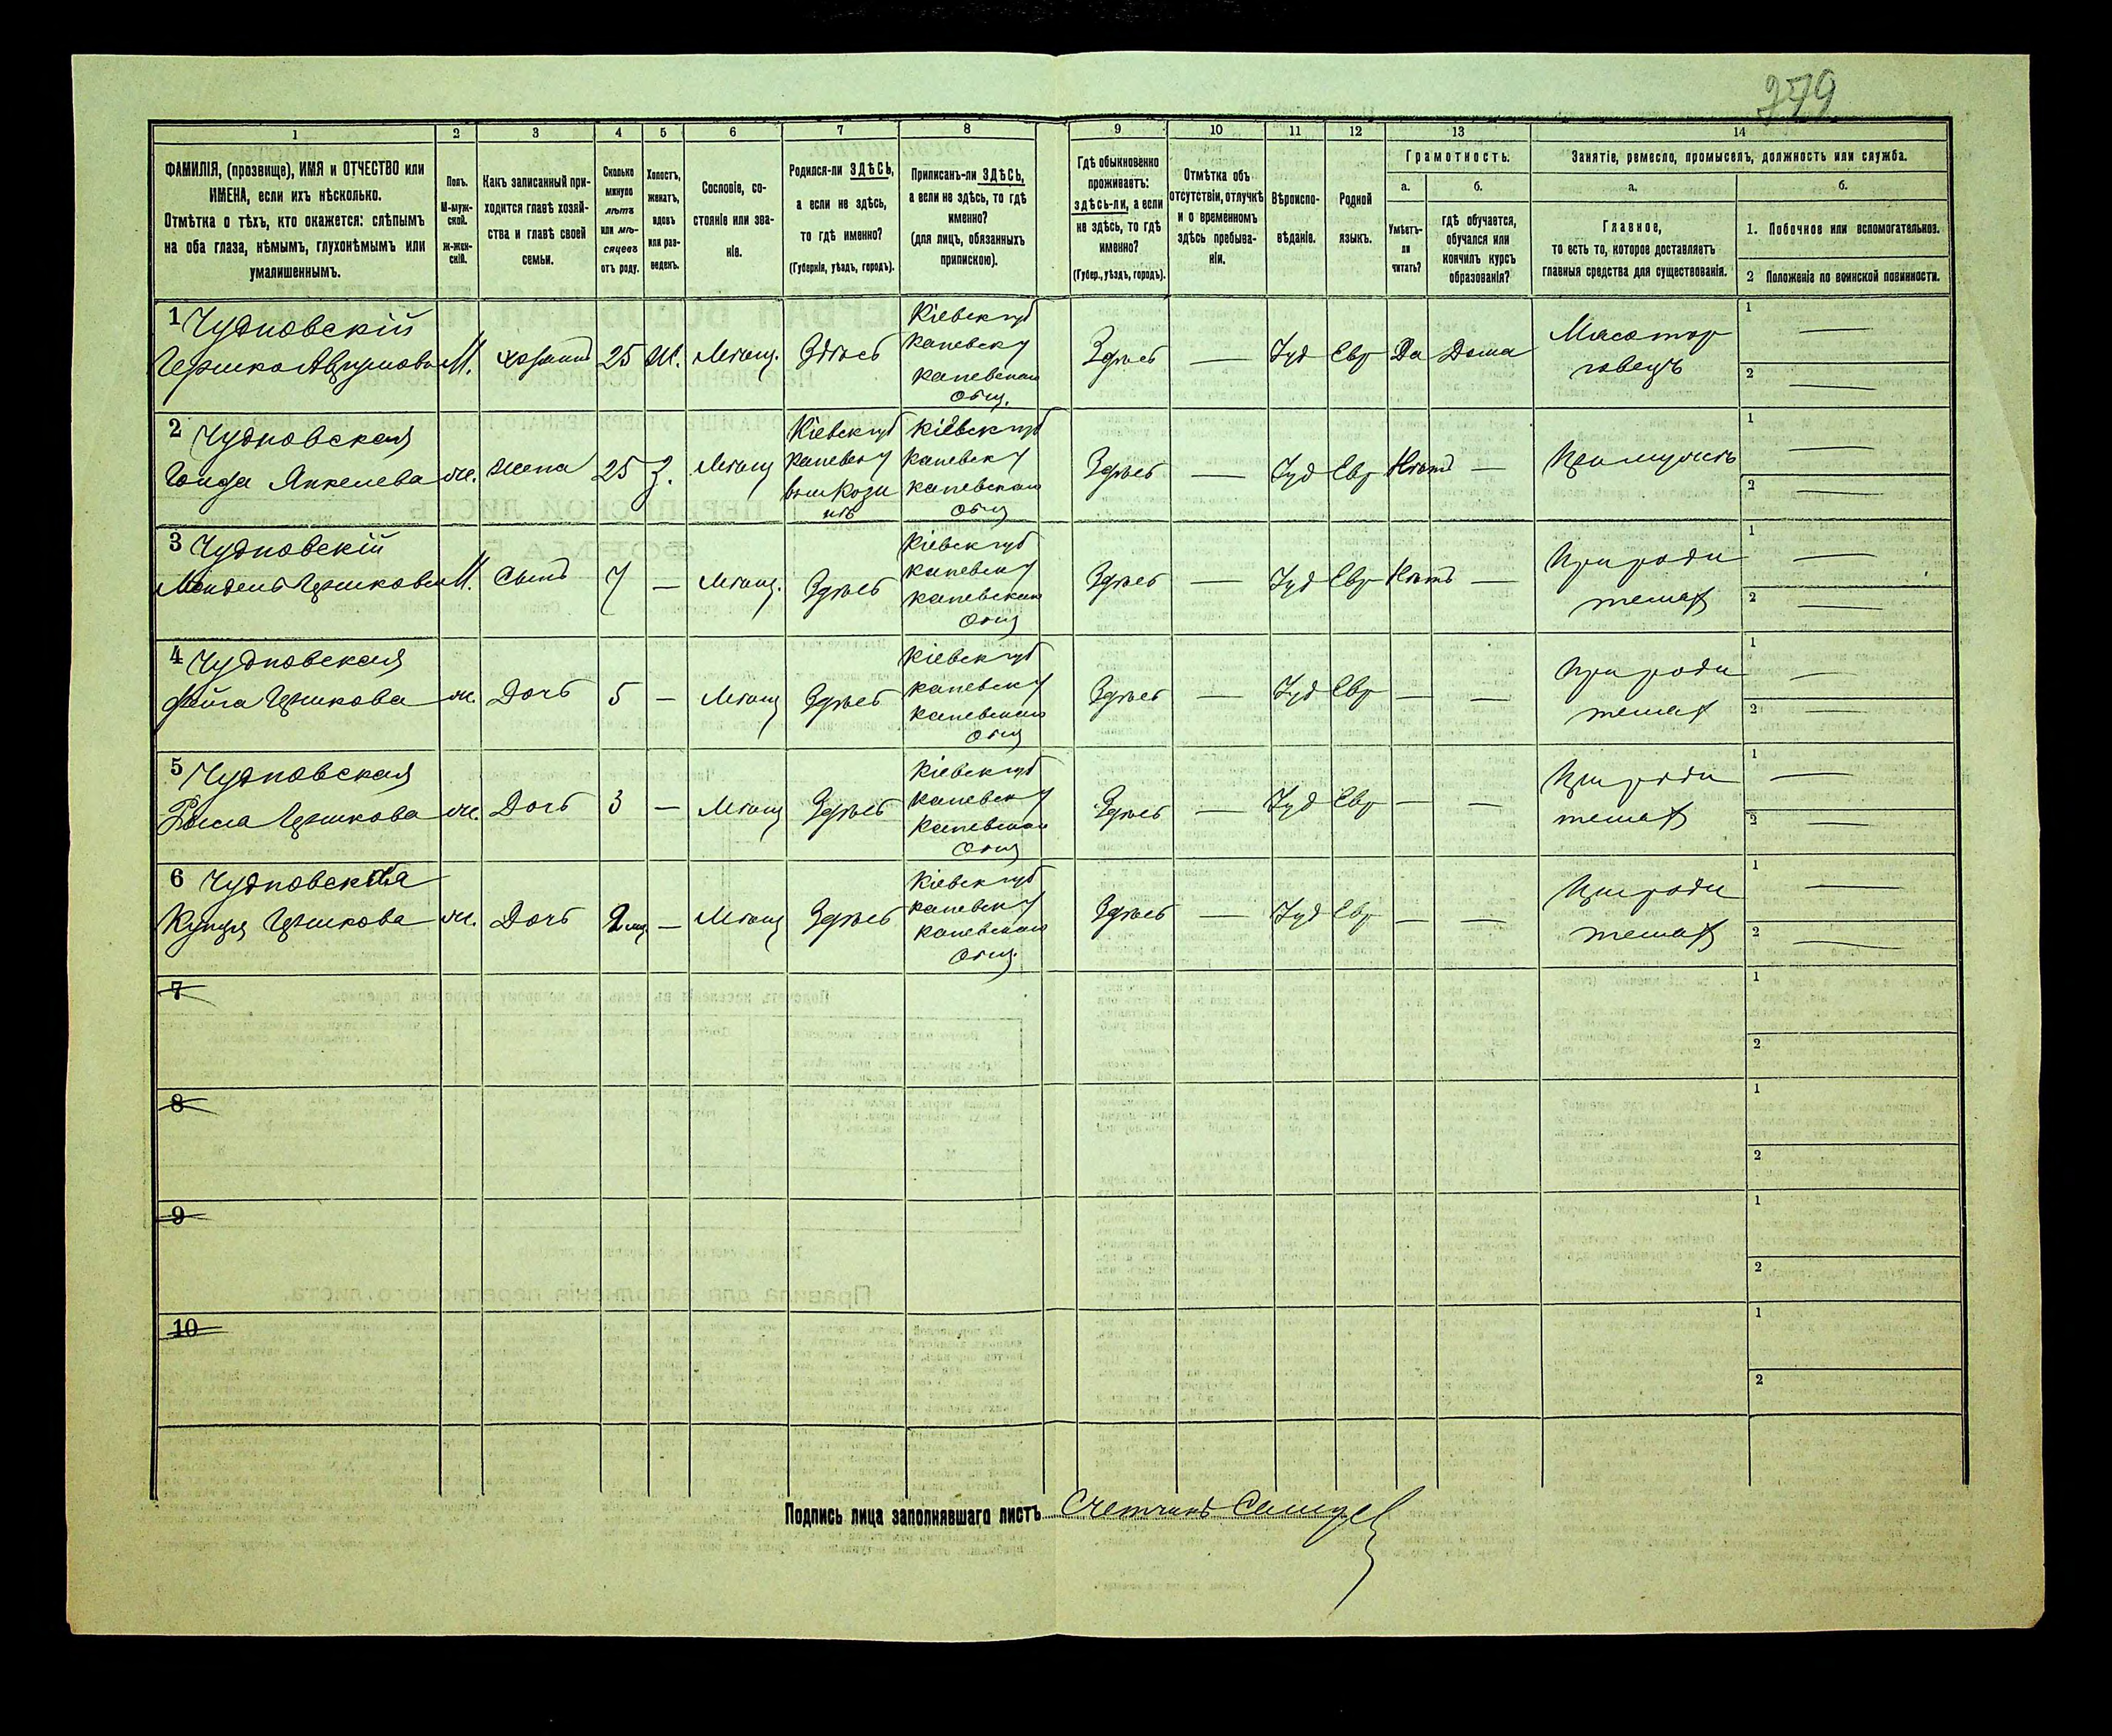 279
1
2
3
4
5
6
7
8
9
10
11
12
13
14
ФАМИЛІЯ, (прозвище), ИМЯ и ОТЧЕСТВО или
ИМЕНА, если ихъ нѣсколько.
Отмѣтка о тѣхъ, кто окажется: слѣпымъ
на оба глаза, нѣмымъ, глухонѣмымъ или
умалишеннымъ.
Полъ.
М-муж-
ской.
ж-жен-
скій.
Какъ записанный при-
ходится главѣ хозяй-
ства и главѣ своей
семьи.
Сколько
минуло
лѣтъ
или мѣ-
сяцевъ
отъ роду.
Холостъ,
женатъ,
вдовъ
или раз-
веденъ.
Сословіе, со-
стояніе или зва-
ніе.
Родился-ли ЗДѢСЬ,
а если не здѣсь,
то гдѣ именно?
(Губернія, уѣздъ, городъ).
Приписанъ-ли ЗДѢСЬ,
а если не здѣсь, то гдѣ
именно?
(для лицъ, обязанныхъ
припискою).
Гдѣ обыкновенно
проживаетъ:
здѣсь-ли, а если
не здѣсь, то гдѣ
именно?
(Губер., уѣздъ, городъ).
Отмѣтка объ
отсутствіи, отлучкѣ
и о временномъ
здѣсь пребыва-
ніи.
Вѣроиспо-
вѣданіе.
Родной
языкъ.
Грамотность.
а.
б.
Умѣетъ-
ли
читать?
гдѣ обучается,
обучался или
кончилъ курсъ
образованія?
Занятіе, ремесло, промыселъ, должность или служба.
а.
б.
Главное,
то есть то, которое доставляетъ
главныя средства для существованія.
1. Побочное или вспомогательное.
2 Положеніе по воинской повинности.
1 Чудновскій
Гершко Аврумовъ М. хозяинъ 25 Ж. Мѣщ. Здѣсь
Кіевск губ
Каневск у
Каневская
Общ.
Здѣсь — Іуд Евр Да Дома
Мясотор
говецъ
1 —
2 —
2 Чудновская
Янкелева ж. жена 25 З. Мѣщ
Кіевск губ
Каневск у
Кіевск губ
Каневск у
Каневская
Общ
Здѣсь — Іуд Евр Нѣтъ —
При мужѣ
1 —
2 —
3 Чудновскій
Мендель Гершковъ М. Сынъ 7 — Мѣщ. Здѣсь
Кіевск губ
Каневск у
Каневская
Общ
Здѣсь — Іуд Евр Нѣтъ —
При роди
теляхъ
1 —
2 —
4 Чудновская
Фейга Гершкова ж. Дочь 5 — Мѣщ Здѣсь
Кіевск губ
Каневск у
Каневская
Общ
Здѣсь — Іуд Евр — —
При роди
теляхъ
1 —
2 —
5 Чудновская
Гершкова ж. Дочь 3 — Мѣщ Здѣсь
Кіевск губ
Каневск у
Каневская
Общ
Здѣсь — Іуд Евр — —
При роди
теляхъ
1 —
2 —
6 Чудновская
Гершкова ж. Дочь 2 мц — Мѣщ Здѣсь
Кіевск губ
Каневск у
Каневская
Общ.
Здѣсь — Іуд Евр — —
При роди
теляхъ
1 —
2 —
7
1
2
8
1
2
9
1
2
10
1
2
Подпись лица заполнявшаго листъ Счетчикъ